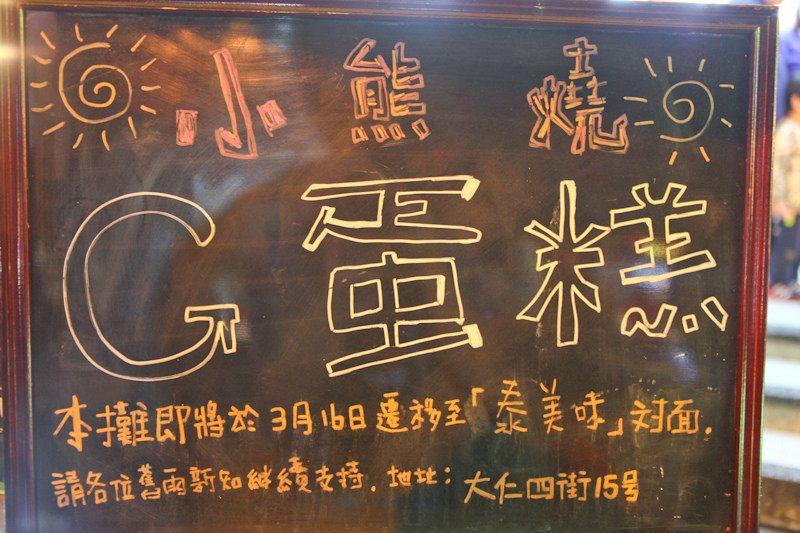 小熊燒
G蛋糕
本攤即將於3月16日遷移至「泰美味」对面.
請各位舊雨新知継續支持. 地址:大仁四街15号